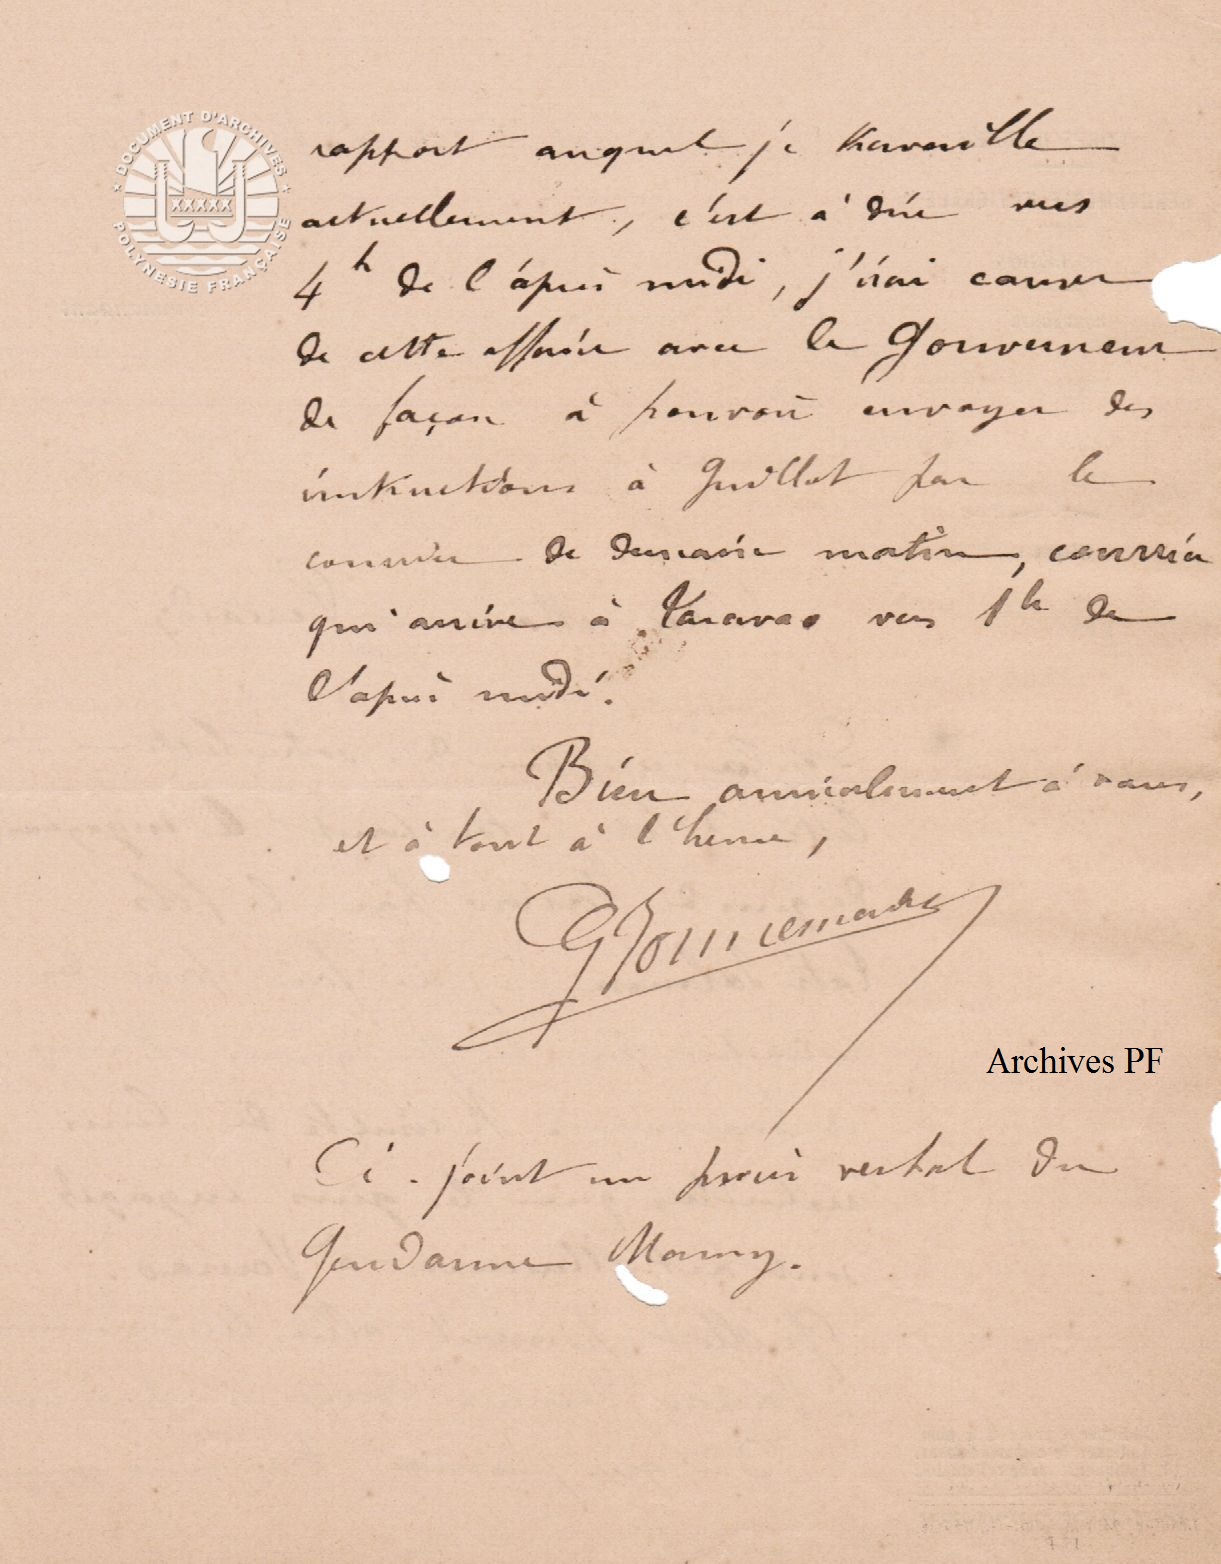 DOCUMENT D'ARCHIVES
XXXXX
POLYNESIE FRANÇAISE
rapport auquel je travaille
actuellement, c'est à dire vers
4h de l'après midi, j'irai causer
de cette affaire avec le Gouverneur
de façon à pouvoir envoyer des
instructions à Guillot par le
courrier de demain matin, courrier
qui arrive à Taravao vers 1h de
l'après midi.
Bien amicalement à vous,
et à tout à l'heure,
Archives PF
Ci-joint un procès verbal du
Gendarme